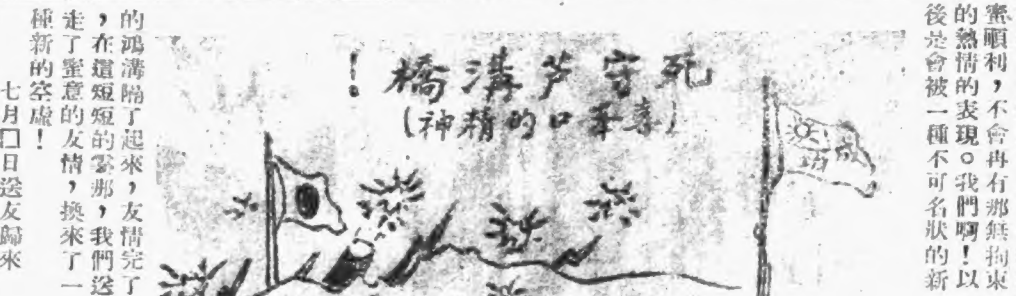 蜜順利，不會再有那無拘束
的熱情的表現。我們啊！以
後是會被一種不可名狀的新
死守芦溝橋！
(喜峯口的精神)
成功
的鴻溝隔了起來，友情完了
，在這短短的霎那，我們送
走了蜜意的友情，換來了一
種新的空虛！
七月□日送友歸來